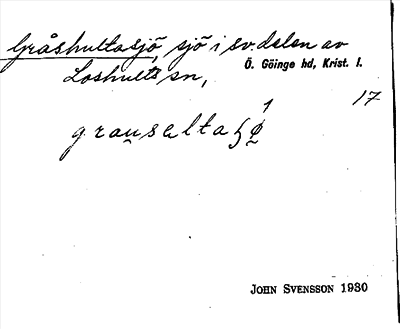 Gråshultasjö, sjö i sv. delen av
Loshults sn, Ö. Göinge hd, Krist. l.
17
JOHN SVENSSON 1930